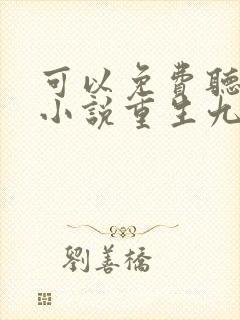 可以免費聽
小說重生九
劉善橋